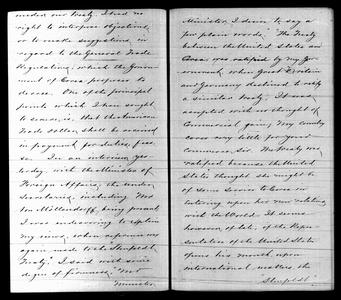 under our Treaty. I had no
right to interpose objections,
or to make suggestions in
regard to the General Trade
Regulations, which the Govern-
ment of Corea proposes to
decree. One of the principal
points which I have sought
to secure, is, that the American
Trade dollar, shall be received
in payment for duties, fees
&c. In an interview yes-
terday with the Minister of
Foreign Affairs, the under
Secretaries, including Mr
von Möllendorff, being present,
I was endeavoring to explain
my views, when reference was
again made to the "Shufeldt
Treaty". I said with some
degree of firmness, "Mr
Minister
Minister, I desire to say a
few plain words. The Treaty
between the United States and
Corea was ratified by my Gov-
ernment, when Great Britain
and Germany declined to ratify
a similar treaty. It was
accepted with no thought of
Commercial gain; My country
cares very little for your
Commerce, Sir. The Treaty was
ratified because the United
States thought she might be
of some service to Corea in
entering upon her new relations
with the World. It seems
however, of late, if the Repre-
sentative of the United States
opens his mouth upon
international matters, the
"Shufeldt